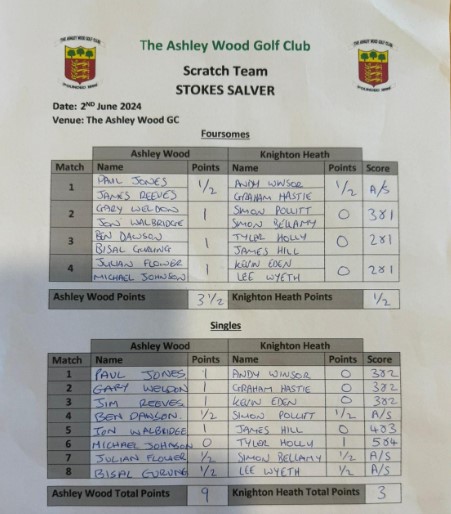 The Ashley Wood Golf Club
Scratch Team
STOKES SALVER
Date: 2ND June 2024
Venue: The Ashley Wood GC
Foursomes
Ashley Wood Knighton Heath
Match Name Points Name Points Score
1 PAUL JONES 1/2 ANDY WINSOR 1/2 A/S
JAMES REEVES GRAHAM HASTIE
2 GARY WELDON 1 SIMON POLLITT 0 3&1
JON WALBRIDGE SIMON BELLAMY
3 BEN DAWSON 1 TYLER HOLLY 0 2&1
BISAL GURUNG JAMES HILL
4 JULIAN FLOWER 1 KEVIN EDEN 0 2&1
MICHAEL JOHNSON LEE WYETH
Ashley Wood Points 3 1/2 Knighton Heath Points 1/2
Singles
Ashley Wood Knighton Heath
Match Name Points Name Points Score
1 PAUL JONES 1 ANDY WINSOR 0 3&2
2 GARY WELDON 1 GRAHAM HASTIE 0 3&2
3 JIM REEVES 1 KEVIN EDEN 0 3&2
4 BEN DAWSON. 1/2 SIMON POLLITT 1/2 A/S
5 JON WALBRIDGE 1 JAMES HILL 0 4&3
6 MICHAEL JOHNSON 0 TYLER HOLLY 1 5&4
7 JULIAN FLOWER 1/2 SIMON BELLAMY 1/2 A/S
8 BISAL GURUNG 1/2 LEE WYETH 1/2 A/S
Ashley Wood Total Points 9 Knighton Heath Total Points 3